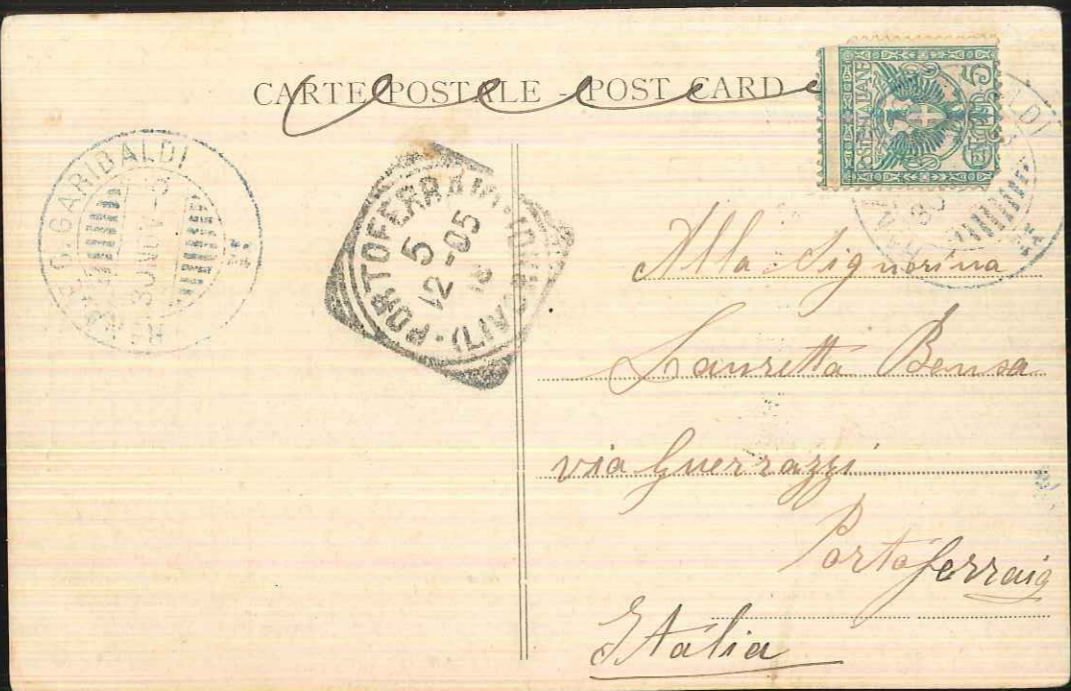 CARTE POSTALE - POST CARD
POSTE ITALIANE
G. GARIBALDI
30 NOV
PORTOFERRAIO
5
12-05
Alla Signorina
Lauretta Bensa
via Guerrazzi
Portoferraio
Italia